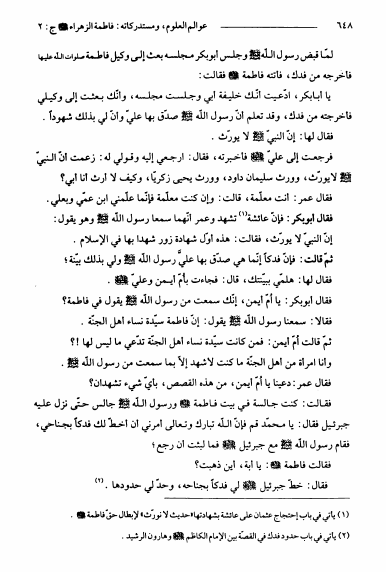 ٦٤٨ عوالم العلوم، ومستدركاته: فاطمة الزهراء ﷺ ج: ٢
لمّا قبض رسول الله ﷺ وجلس أبوبكر مجلسه بعث إلى وكيل فاطمة صلوات الله عليها
فأخرجه من فدك، فأتته فاطمة ﷺ فقالت:
يا أبابكر، ادّعيت أنّك خليفة أبي وجلست مجلسه، وأنّك بعثت إلى وكيلي
فأخرجته من فدك، وقد تعلم أنّ رسول الله ﷺ صدّق بها عليّ وأنّ لي بذلك شهوداً.
فقال لها: إنّ النبيّ ﷺ لا يورّث.
فرجعت إلى عليّ ﷺ فأخبرته، فقال: ارجعي إليه وقولي له: زعمت أنّ النبيّ
ﷺ لايورّث، وورث سليمان داود، وورث يحيى زكريّا، وكيف لا أرث أنا أبي؟
فقال عمر: أنت معلّمة، قالت: وإن كنت معلّمة فإنّما علّمني ابن عمّي وبعلي.
فقال أبوبكر: فإنّ عائشة(١) تشهد وعمر أنّهما سمعا رسول الله ﷺ وهو يقول:
إنّ النبيّ لا يورّث، فقالت: هذه أوّل شهادة زور شهدا بها في الإسلام.
ثمّ قالت: فإنّ فدكاً إنّما هي صدّق بها عليّ رسول الله ﷺ ولي بذلك بيّنة؛
فقال لها: هلمّي ببيّنتك، قال: فجاءت بأمّ أيمن وعليّ ﷺ.
فقال أبوبكر: يا أمّ أيمن، إنّك سمعت من رسول الله ﷺ يقول في فاطمة؟
فقالا: سمعنا رسول الله ﷺ يقول: إنّ فاطمة سيّدة نساء أهل الجنّة.
ثمّ قالت أمّ أيمن: فمن كانت سيّدة نساء أهل الجنّة تدّعي ما ليس لها !؟
وأنا امرأة من أهل الجنّة ما كنت لأشهد إلاّ بما سمعت من رسول الله ﷺ.
فقال عمر: دعينا يا أمّ أيمن، من هذه القصص، بأيّ شيء تشهدان؟
فقالت: كنت جالسة في بيت فاطمة ﷺ ورسول الله ﷺ جالس حتّى نزل عليه
جبرئيل فقال: يا محمّد قم فإنّ الله تبارك وتعالى أمرني أن أخطّ لك فدكاً بجناحي،
فقام رسول الله ﷺ مع جبرئيل ﷺ فما لبثت أن رجع؛
فقالت فاطمة ﷺ: يا أبه، أين ذهبت؟
فقال: خطّ جبرئيل ﷺ لي فدكاً بجناحه، وحدّ لي حدودها.(٢)
(١) يأتي في باب إحتجاج عثمان على عائشة بشهادتها «حديث لا نورّث» لإبطال حقّ فاطمة ﷺ.
(٢) يأتي في باب حدود فدك في القصّة بين الإمام الكاظم ﷺ وهارون الرشيد.